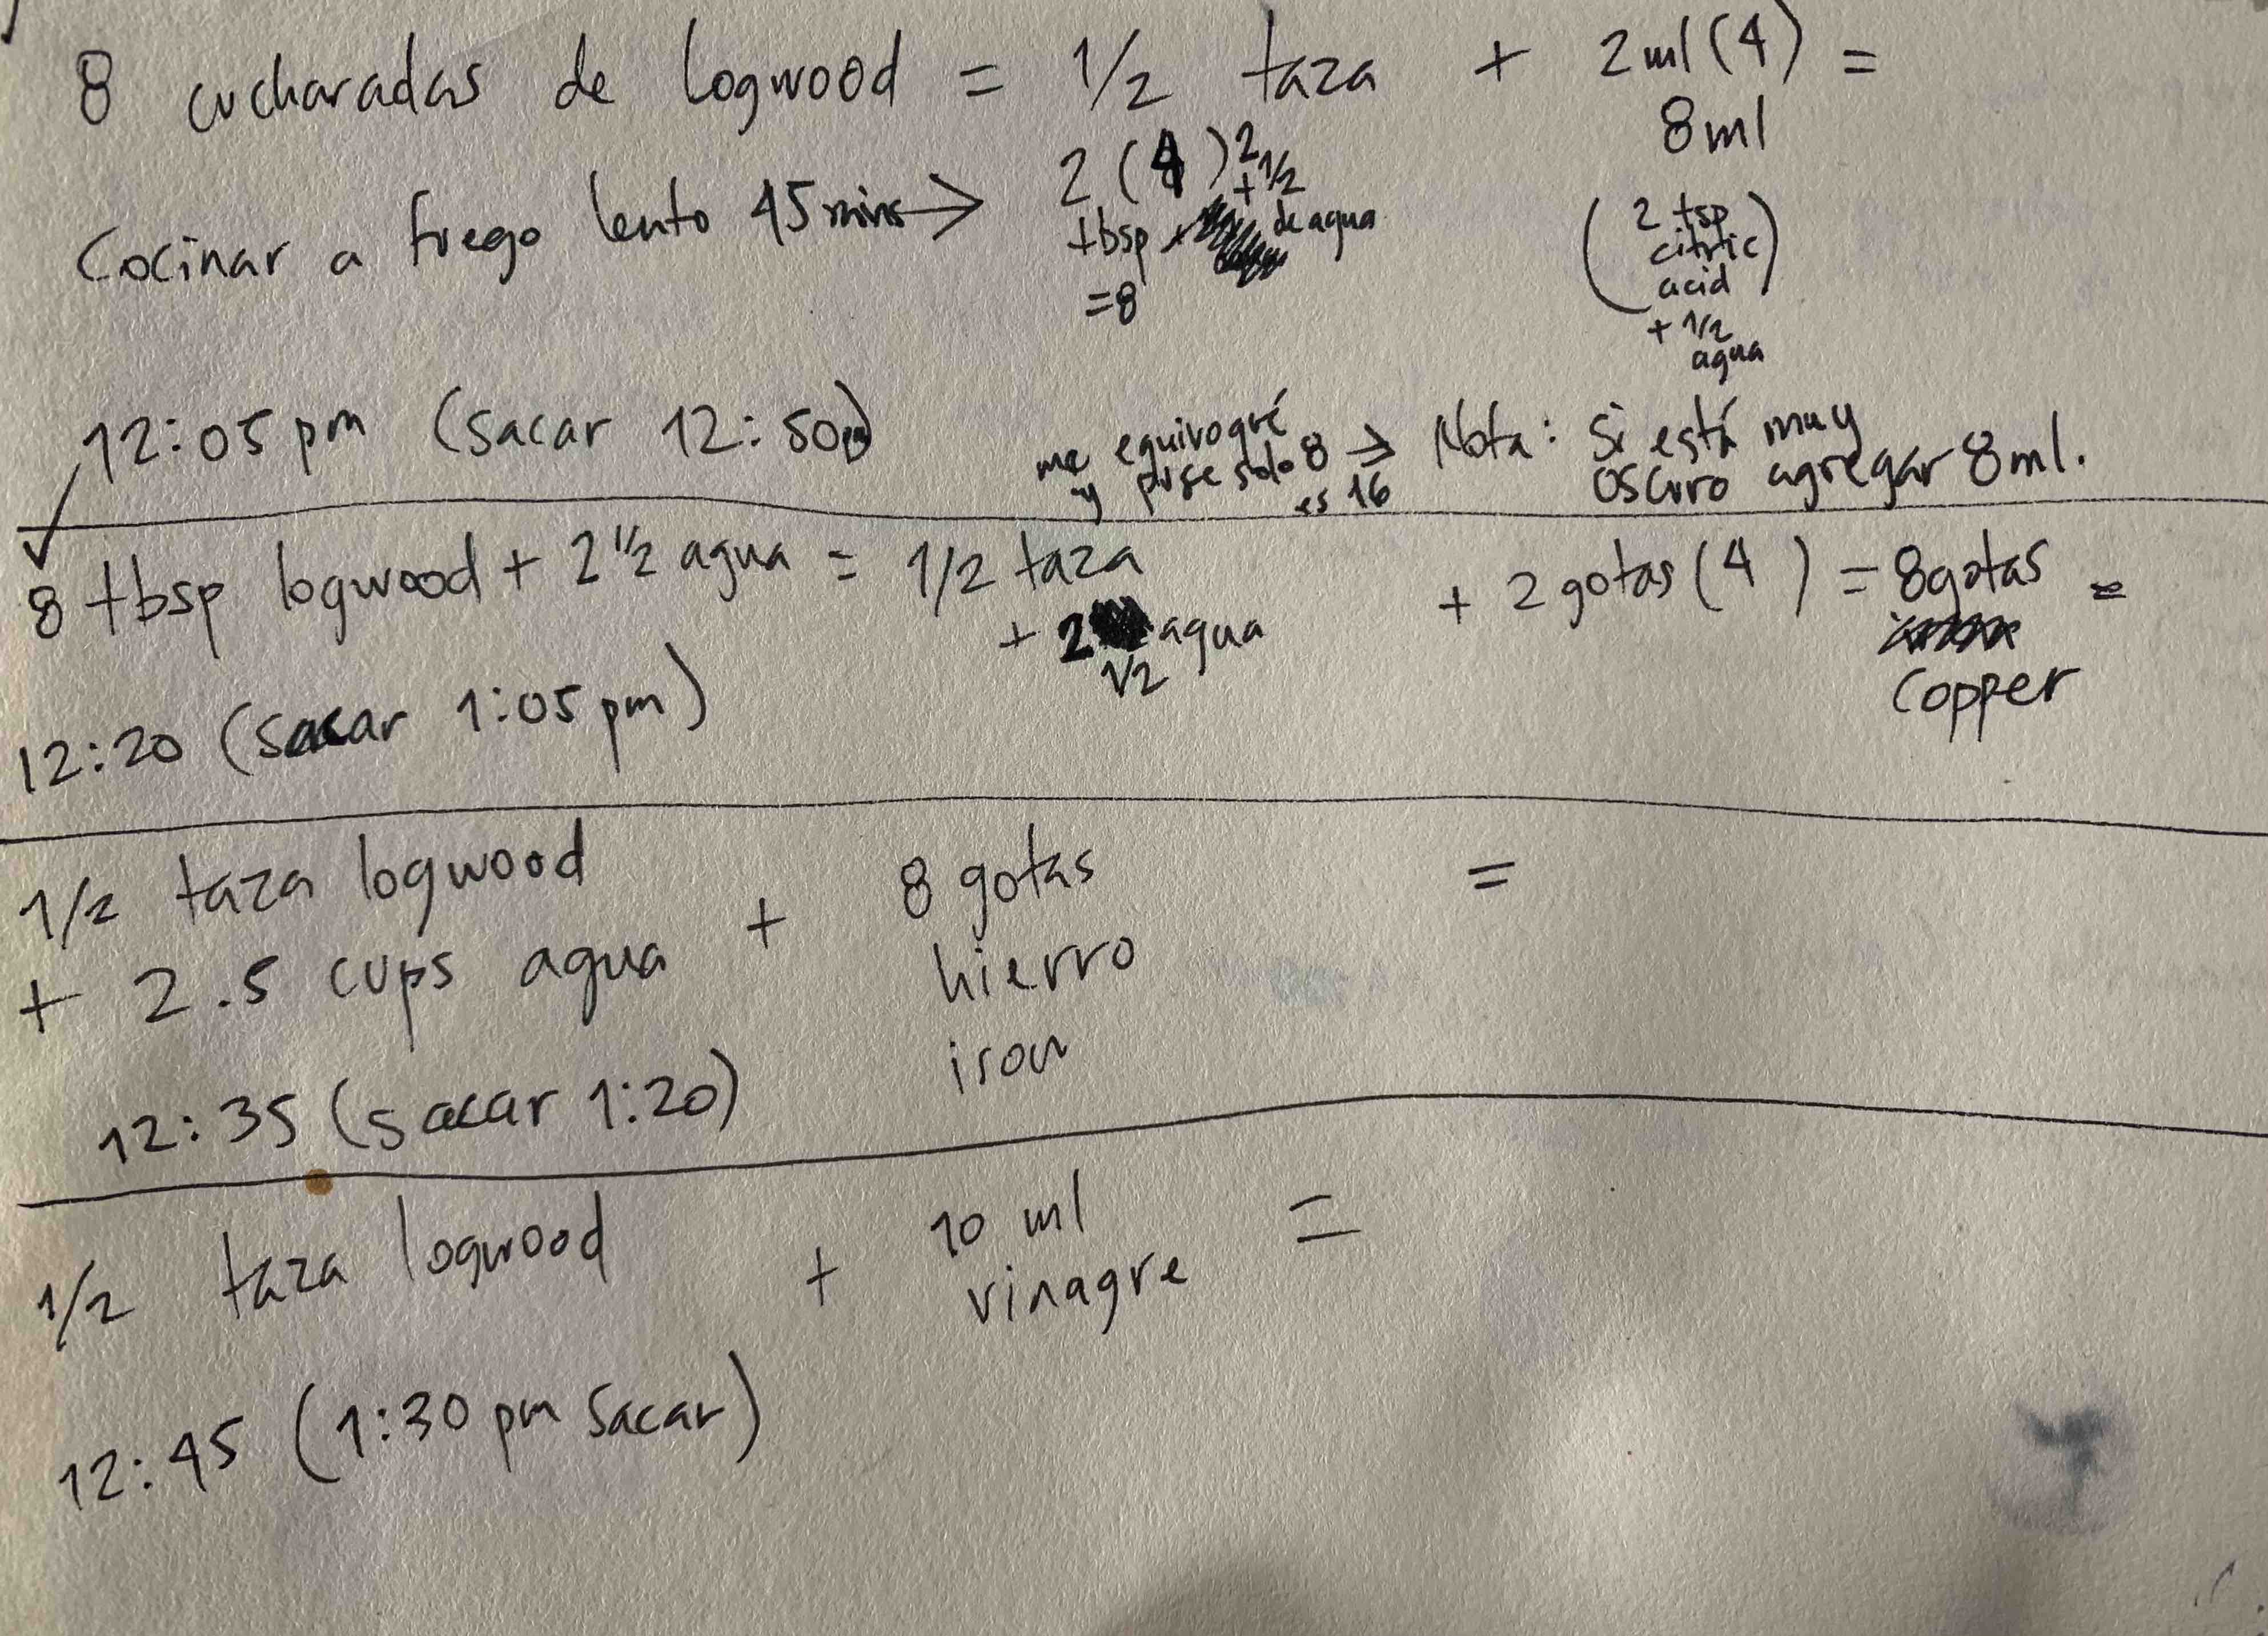 8 cucharadas de logwood = 1/2 taza + 2 ml (4) =
8ml
Cocinar a fuego lento 45 mins → 2 (4) 2 1/2
tbsp + de agua
=8
( 2 tsp
citric
acid )
+ 1/2
agua
12:05 pm (sacar 12:50)
me equivoqué
y puse solo 8 →
es 16
Nota: Si está muy
oscuro agregar 8ml.
8 tbsp logwood + 2 1/2 agua = 1/2 taza + 2 gotas (4) = 8 gotas =
+ 2 1/2 agua
copper
12:20 (sacar 1:05 pm)
1/2 taza logwood + 8 gotas =
+ 2.5 cups agua hierro
iron
12:35 (sacar 1:20)
1/2 taza logwood + 10 ml =
vinagre
12:45 (1:30 pm sacar)